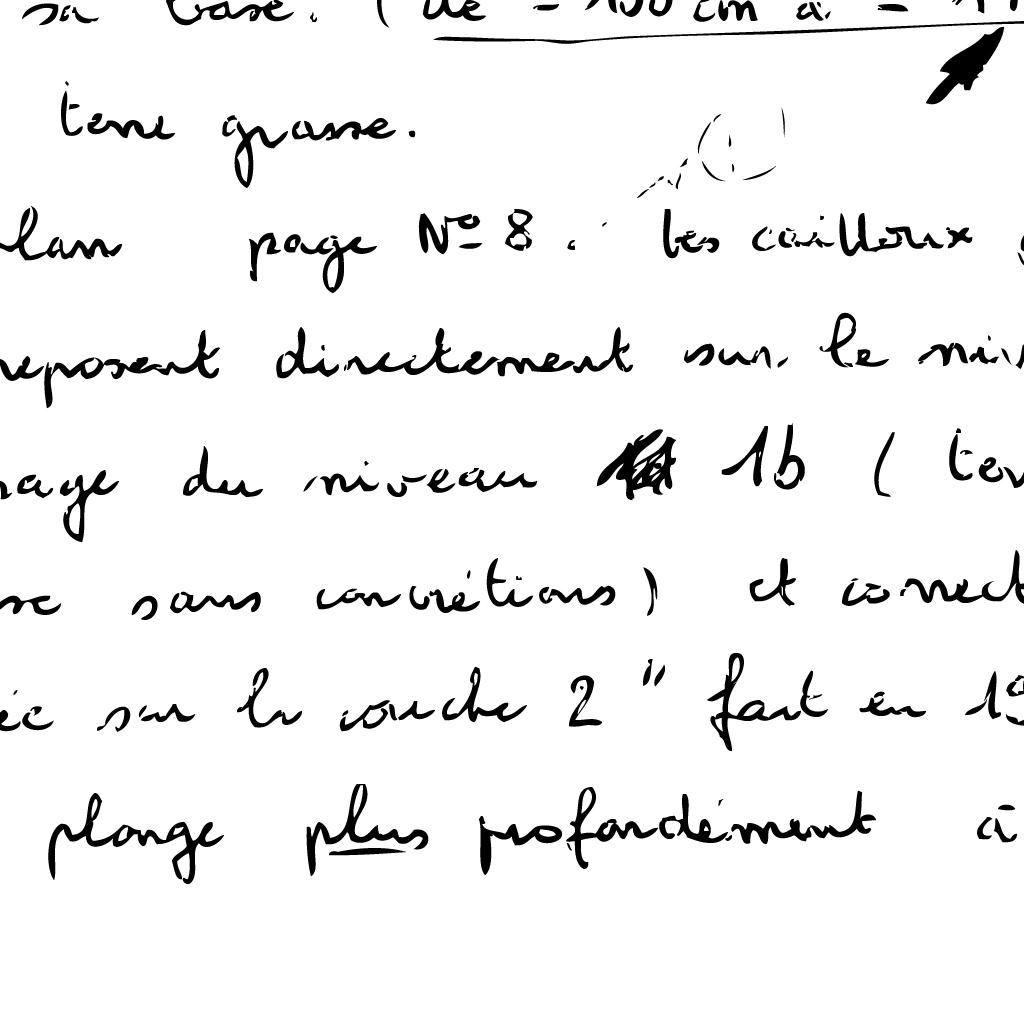 sa base. (de - 150 cm à -
terre grasse.
plan page Nº 8. Les cailloux
reposent directement sur le
du niveau 1b (
sans concrétions) et
sur la couche 2 " fait en
plonge plus profondément à